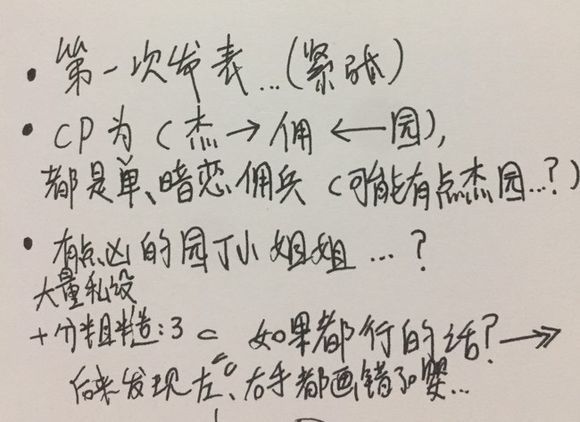 • 第一次发表…(紧张)
• CP为(杰→佣←园),
都是单、暗恋佣兵(可能有点杰园…?)
• 有点凶的园丁小姐姐…?
大量私设
+分粗糙:3 c 如果都行的话?→
后来发现左、右手都画错了嘤…